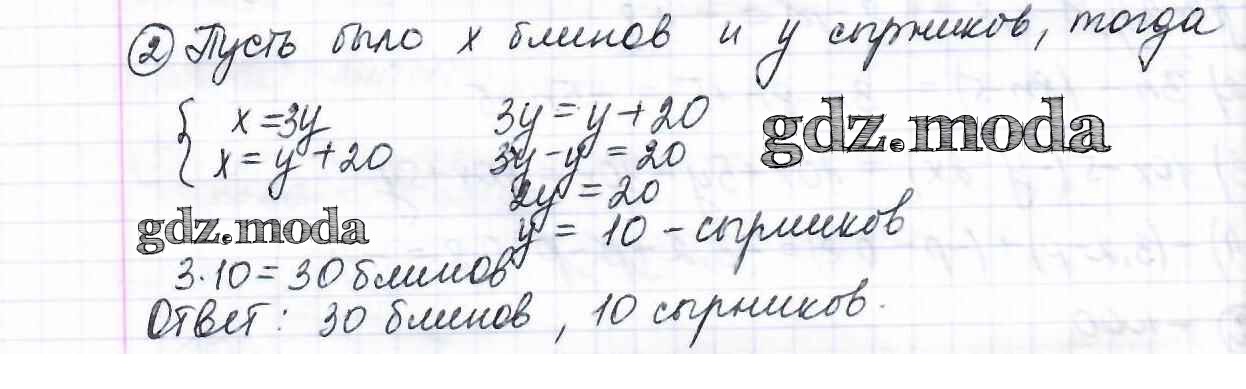 ② Пусть было x блинов и y сырников, тогда
{ x = 3y
x = y + 20
3y = y + 20
3y - y = 20
2y = 20
y = 10 - сырников
gdz.moda
gdz.moda
3·10 = 30 блинов
Ответ: 30 блинов, 10 сырников.